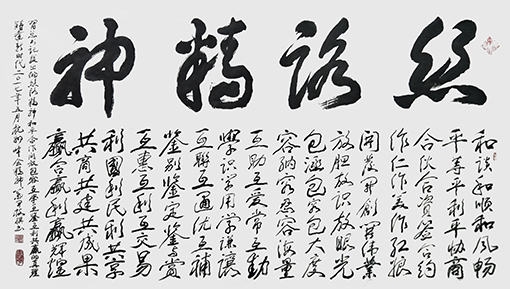 丝路精神
和谈和顺和风畅
平等平利平协商
合伙合资签合约
作仁作美作红娘
開发開创開伟業
放胆放识放眼光
包涵包容包大度
容纳容忍容海量
互助互爱常互動
學识學用學谦讓
互联互通优互補
鉴别鉴定鉴与赏
互惠互利互交易
利國利民利共享
共商共建共成果
赢合赢利赢辉煌